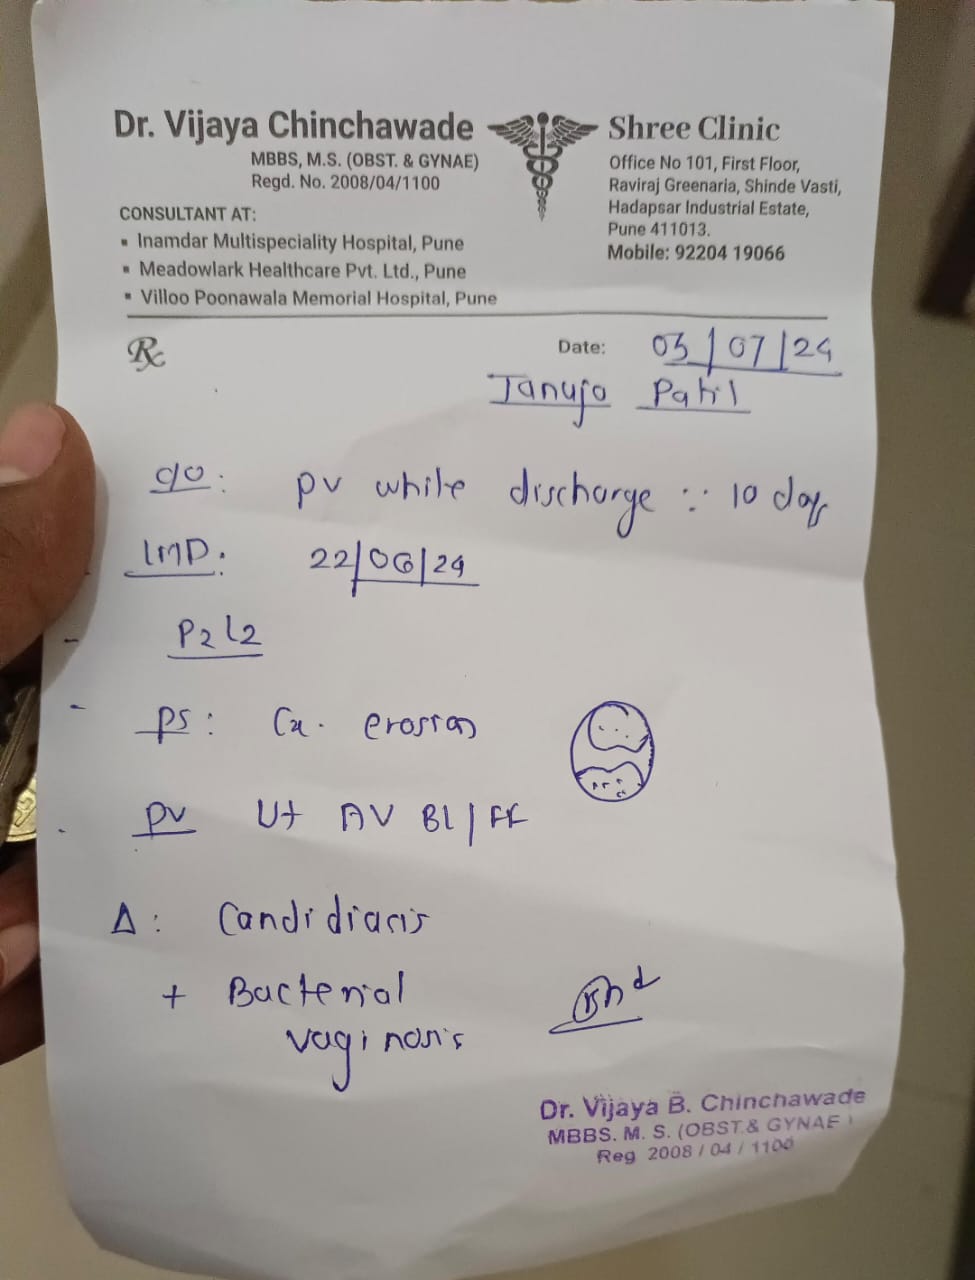 Dr. Vijaya Chinchawade
MBBS, M.S. (OBST. & GYNAE)
Regd. No. 2008/04/1100
CONSULTANT AT:
▪ Inamdar Multispeciality Hospital, Pune
▪ Meadowlark Healthcare Pvt. Ltd., Pune
▪ Villoo Poonawala Memorial Hospital, Pune
Shree Clinic
Office No 101, First Floor,
Raviraj Greenaria, Shinde Vasti,
Hadapsar Industrial Estate,
Pune 411013.
Mobile: 92204 19066
Rx
Date: 03/07/24
Tanuja Patil
c/o: PV white discharge ∵ 10 days
LMP: 22/06/24
P2L2
PS: Cx. erosion
PV Ut AV BL/FF
Δ: Candidiasis
+ Bacterial
vaginosis
Dr. Vijaya B. Chinchawade
MBBS. M. S. (OBST.& GYNAE )
Reg 2008 / 04 / 1100